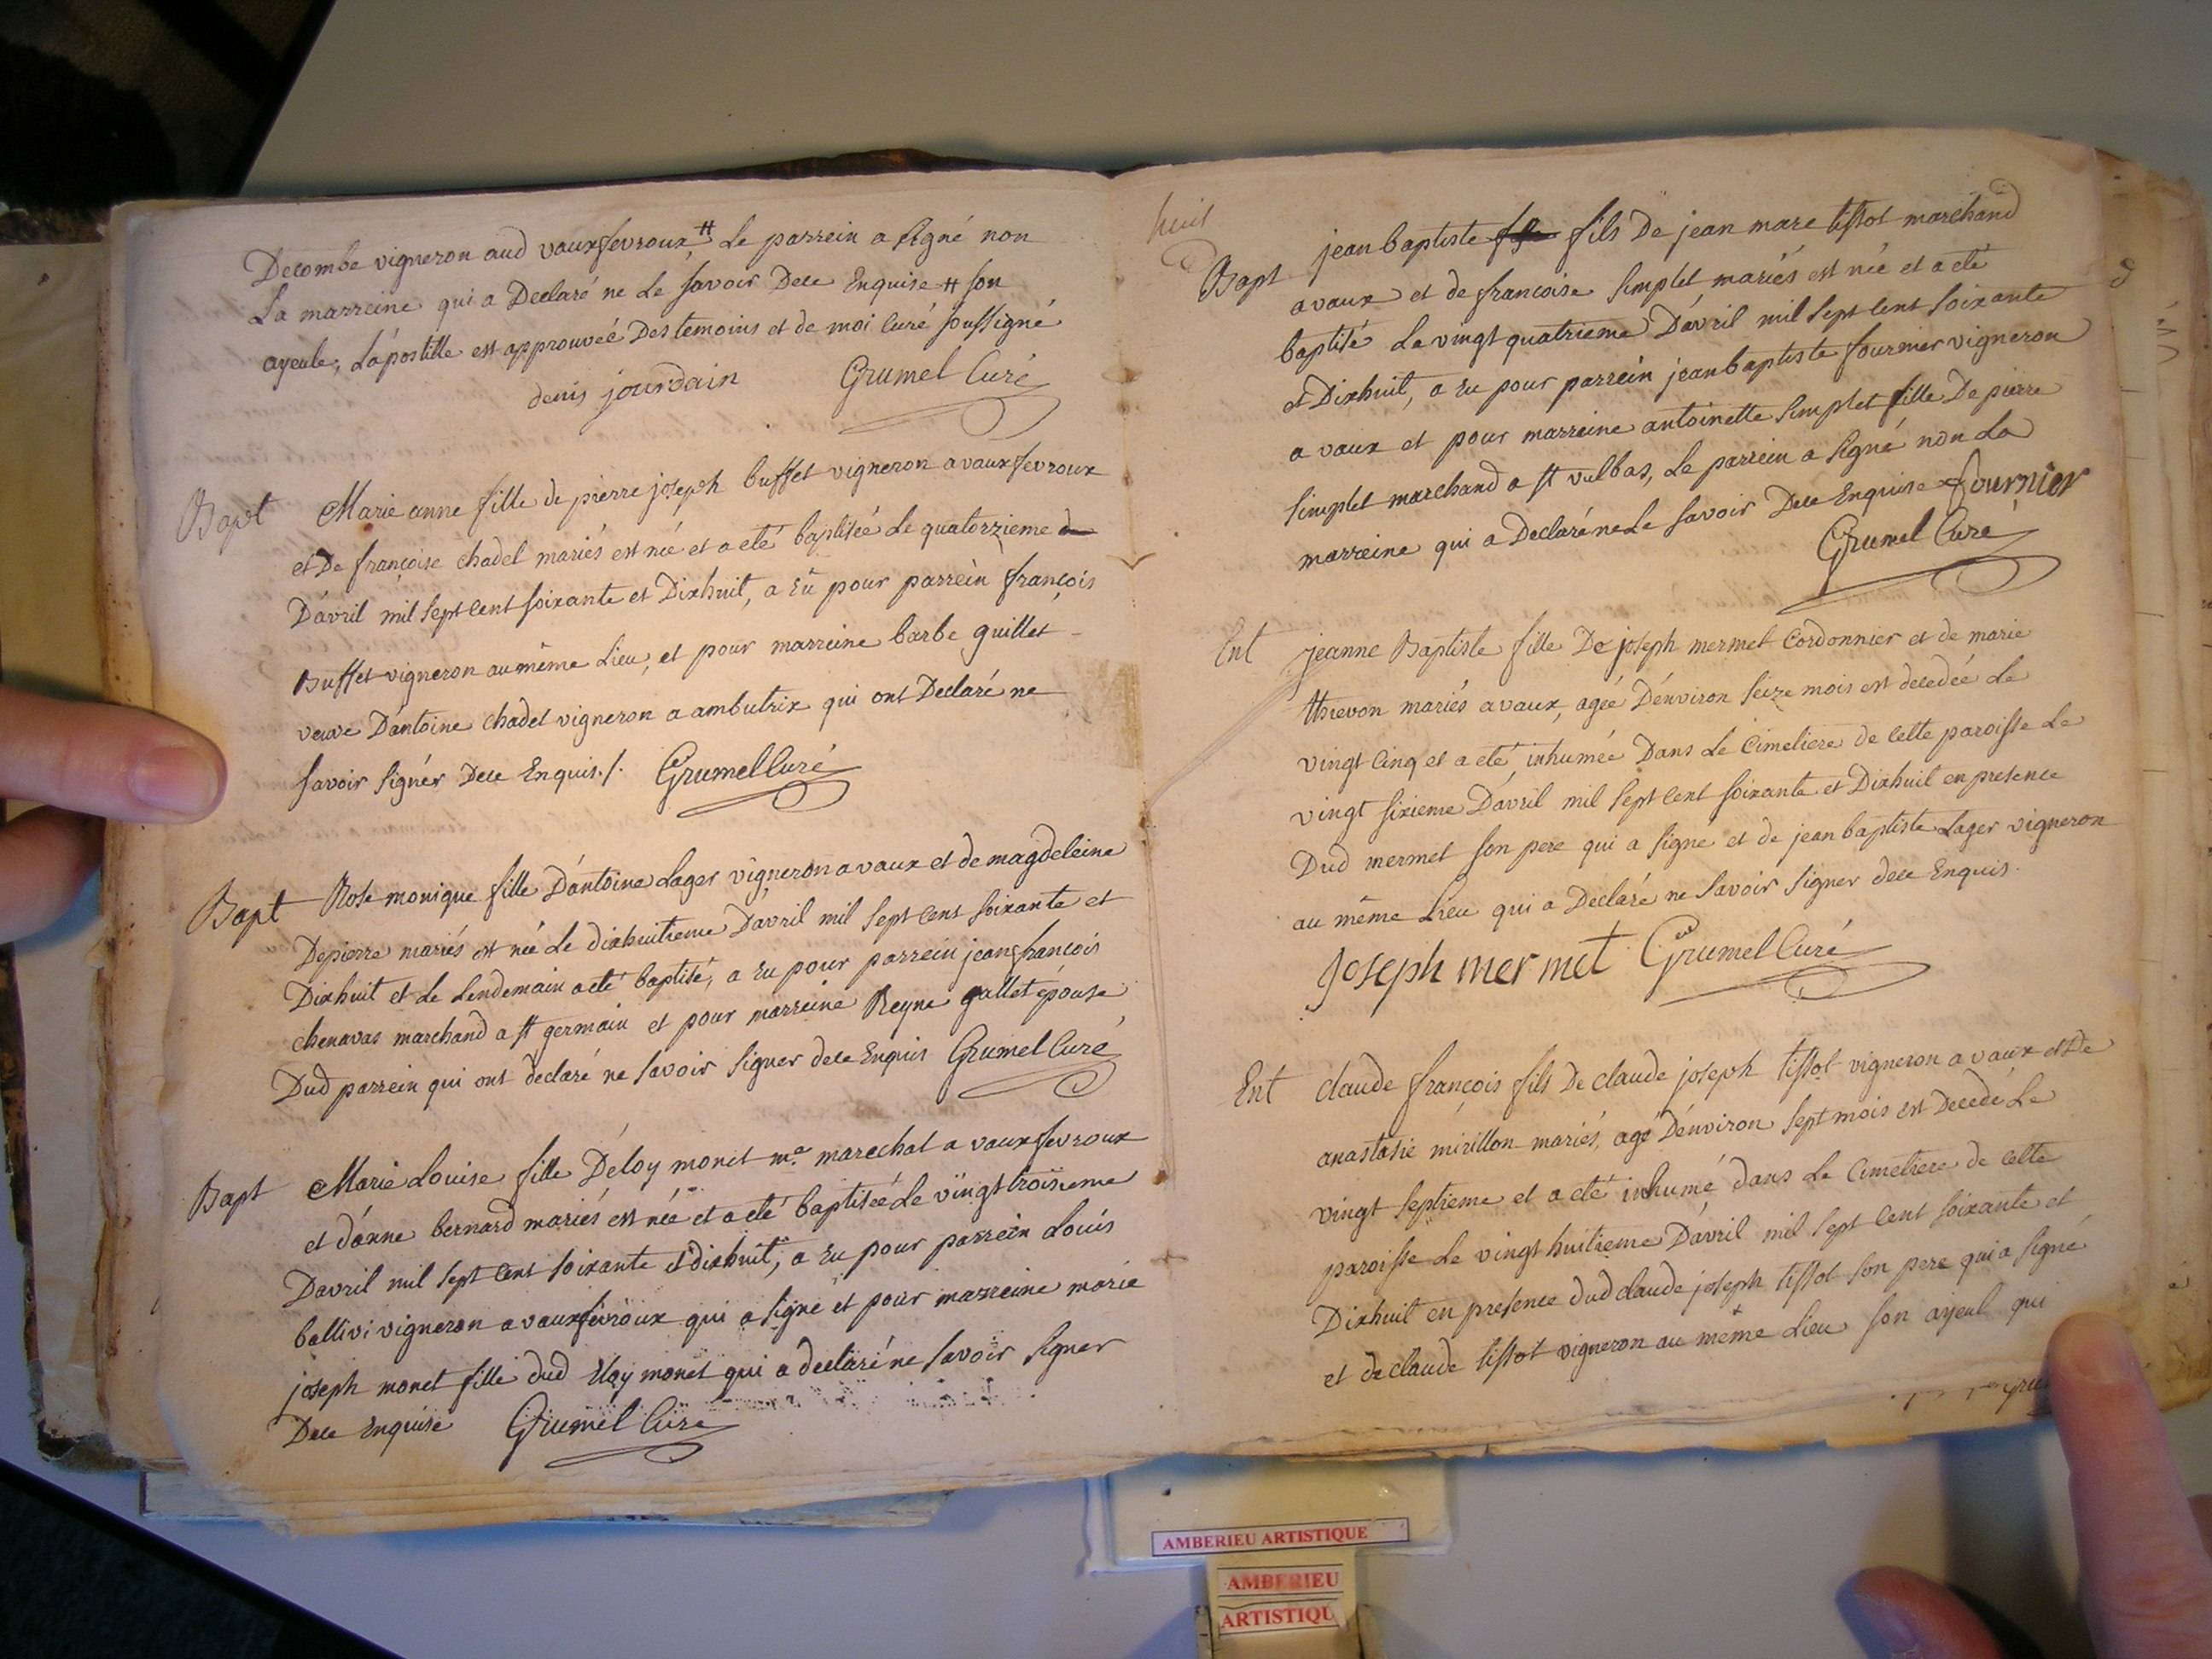 Decombe vigneron aud vauxfevroux # Le parrein a signé non
La marreine qui a Declaré ne Le savoir Dece Enquise # son
ayeule, L'apostille est approuveé Des temoins et de moi Curé soussigné
denis jourdain Grumel Curé
Bapt Marie anne fille de pierre joseph buffet vigneron a vauxfevroux
et De françoise chadel mariés est née et a eté baptiseé Le quatorzieme
D'avril mil sept cent soixante et Dixhuit, a Eü pour parrein françois
Buffet vigneron au même Lieu, et pour marreine barbe guillet
veuve D'antoine chadel vigneron a ambutrix qui ont Declaré ne
savoir signér Dece Enquis ./. Grumel Curé
Bapt Rose monique fille D'antoine Lager vigneron a vaux et de magdeleine
Depierre mariés est née Le dixhuitieme D'avril mil sept cent soixante et
Dixhuit et Le Lendemain a eté baptisé, a Eu pour parrein jean francois
chenavas marchand a st germain et pour marreine Reyne gallet épouse
Dud parrein qui ont declaré ne savoir signer dece Enquis Grumel Curé
Bapt Marie Louise fille D'éloy monet me. marechal a vauxfevroux
et d'anne bernard mariés est née et a eté baptiseé Le vingt troisieme
D'avril mil sept cent soixante et dixhuit, a Eu pour parrein Louis
ballivi vigneron a vauxfevroux qui a signé et pour marreine marie
joseph monet fille dud Eloy monet qui a declaré ne savoir signer
Dece Enquise Grumel Curé
huit
Bapt jean baptiste fils De jean marc tissot marchand
a vaux et de francoise simplet mariés est née et a eté
baptisé Le vingt quatrieme D'avril mil sept cent soixante
et Dixhuit, a Eu pour parrein jean baptiste fournier vigneron
a vaux et pour marreine antoinette simplet fille De pierre
simplet marchand a st vulbas, Le parrein a signé non La
marreine qui a Declaré ne Le savoir Dece Enquise fournier
Grumel Curé
Ent jeanne Baptiste fille De joseph mermet Cordonnier et de marie
threvon mariés a vaux, ageé D'environ seize mois est decedeé Le
vingt cinq et a eté inhumée Dans Le Cimetiere de cette paroisse Le
vingt sixieme D'avril mil sept cent soixante et Dixhuit en presence
Dud mermet son pere qui a signé et de jean baptiste Lager vigneron
au même Lieu qui a Declaré ne savoir signer dece Enquis.
joseph mermet Grumel Curé
Ent claude françois fils De claude joseph tissot vigneron a vaux et De
anastasie mirillon mariés, agé D'environ sept mois est Decedé Le
vingt septieme et a eté inhumé dans Le Cimetiere de cette
paroisse Le vingt huitieme D'avril mil sept cent soixante et
Dixhuit en presence dud claude joseph tissot son pere qui a signé
et de claude tissot vigneron au même Lieu son ayeul qui
AMBERIEU ARTISTIQUE
AMBERIEU
ARTISTIQU